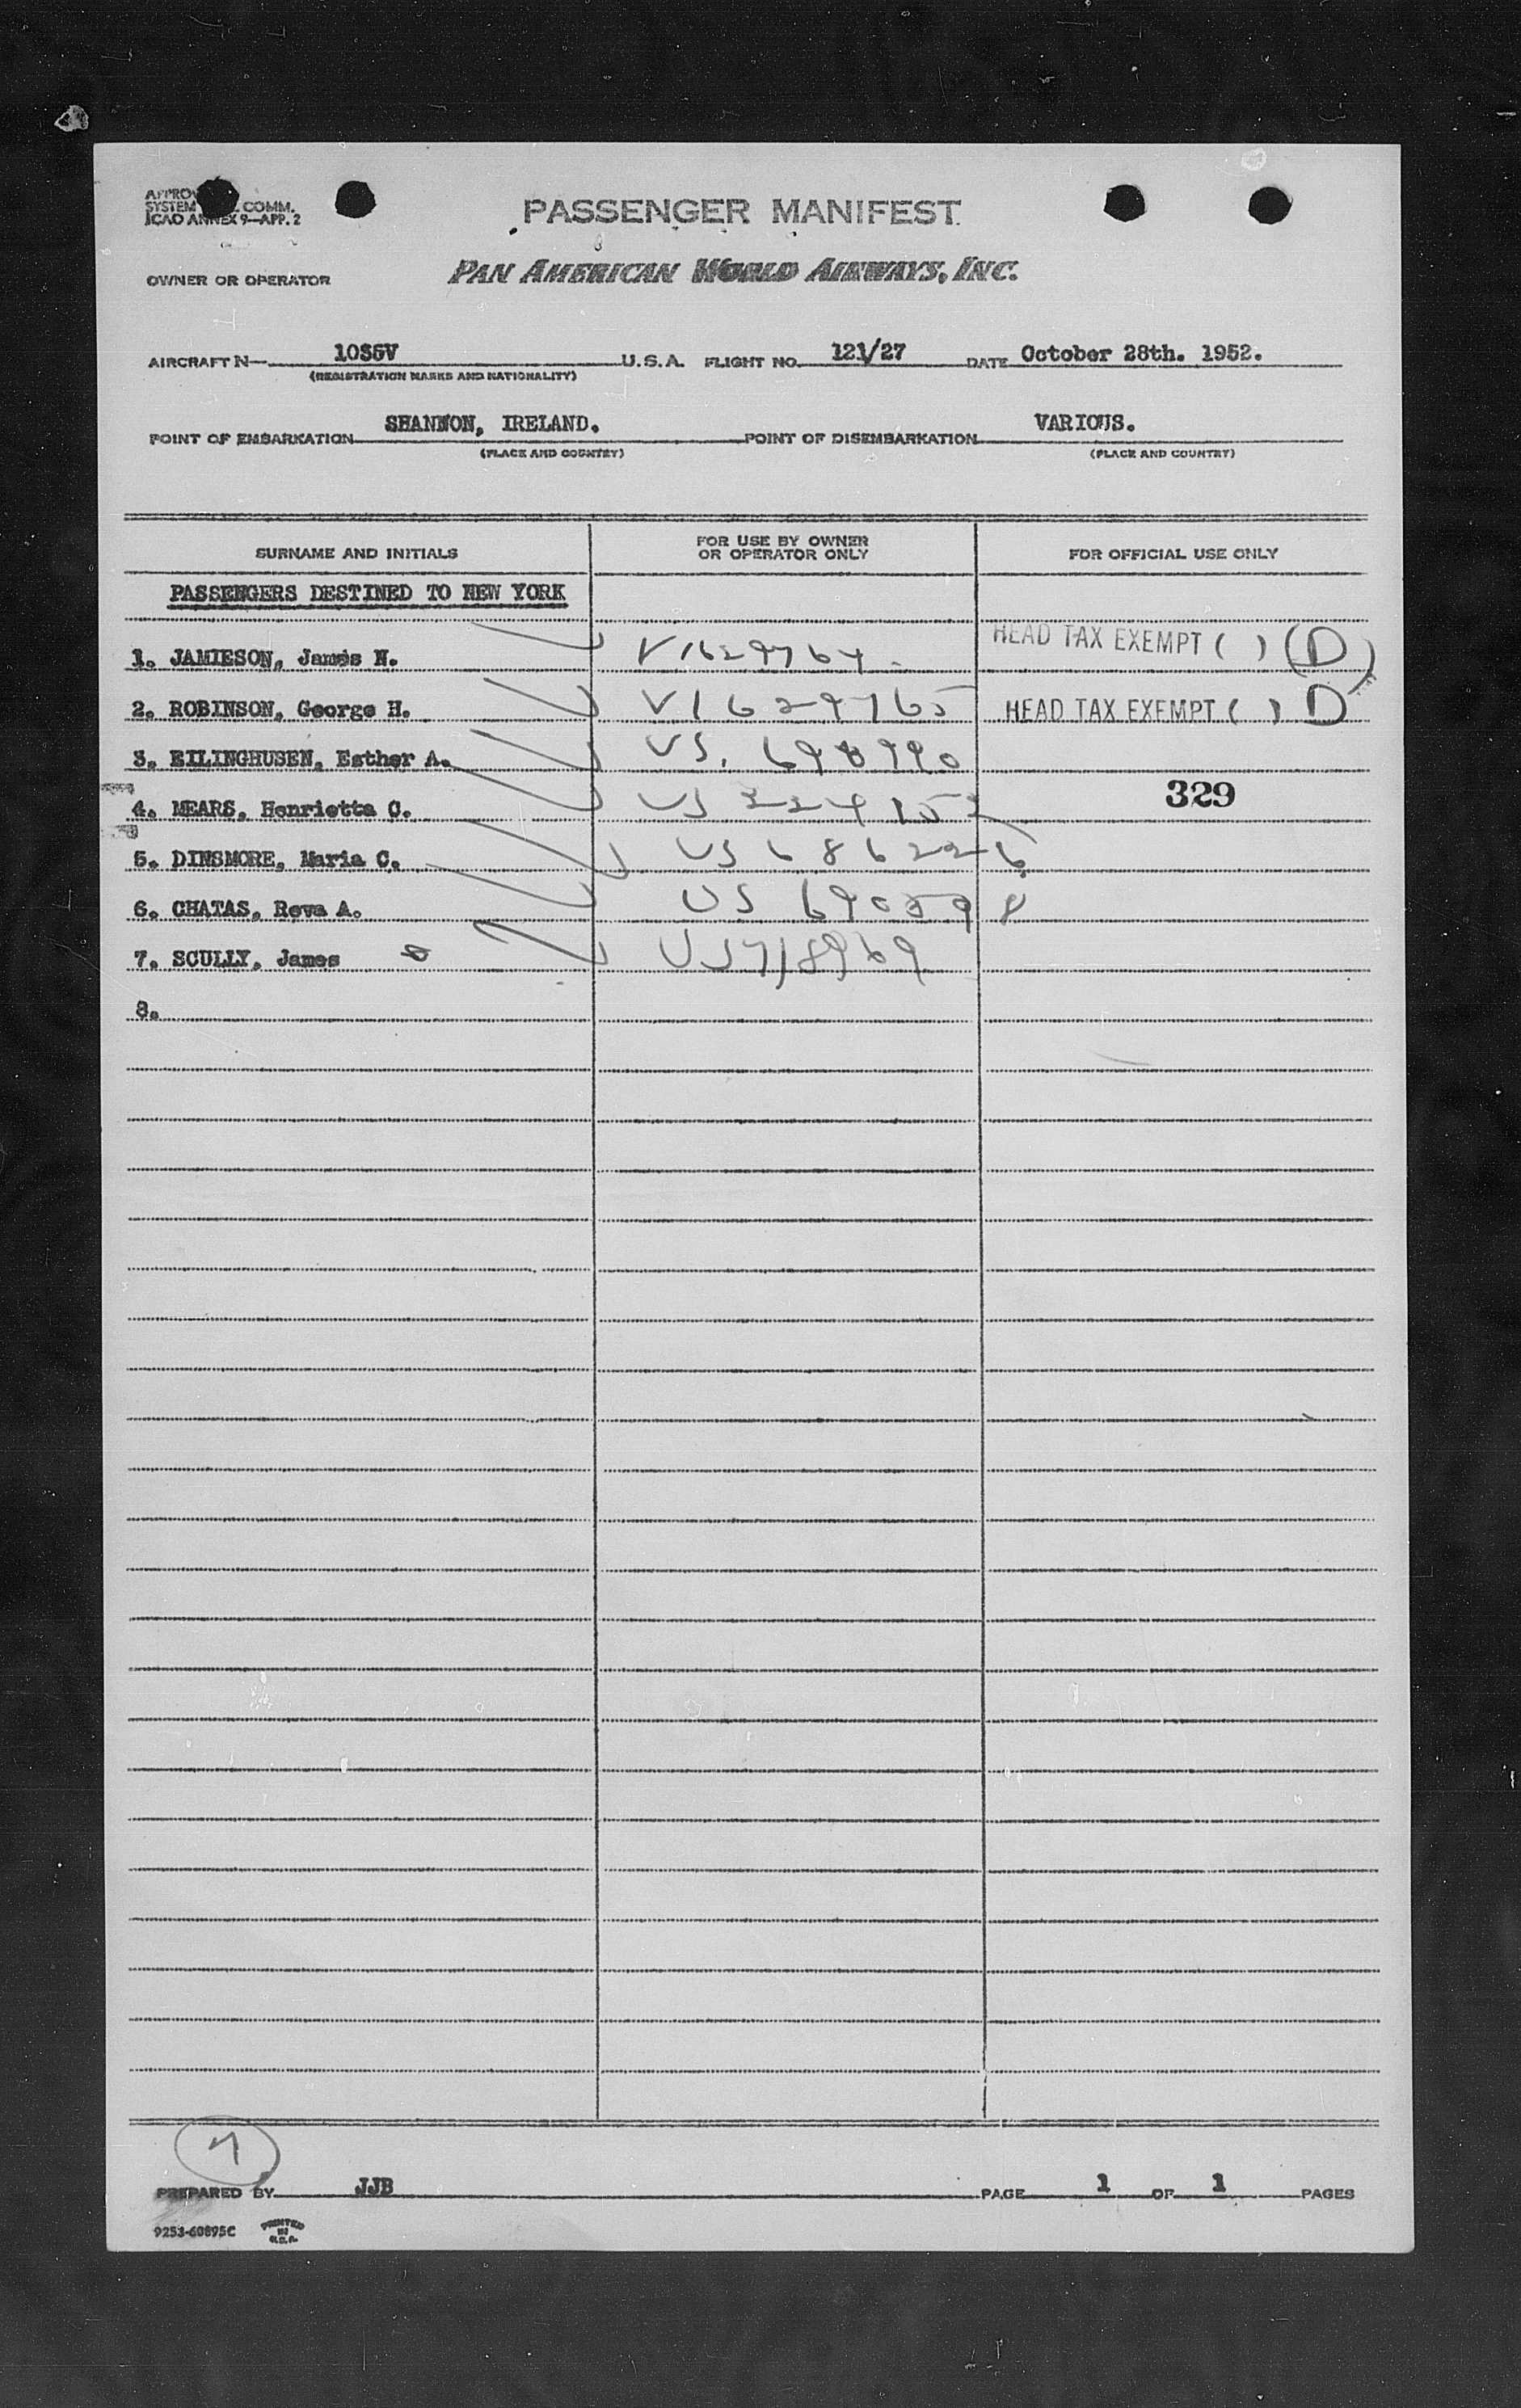 PASSENGER MANIFEST
SYSTEM COMM.
ICAO ANNEX 9—APP. 2
OWNER OR OPERATOR PAN AMERICAN WORLD AIRWAYS, INC.
AIRCRAFT N— 1036V U.S.A. FLIGHT NO. 121/27 DATE October 28th. 1952.
(REGISTRATION MARKS AND NATIONALITY)
POINT OF EMBARKATION SHANNON, IRELAND. POINT OF DISEMBARKATION VARIOUS.
(PLACE AND COUNTRY) (PLACE AND COUNTRY)
SURNAME AND INITIALS FOR USE BY OWNER OR OPERATOR ONLY FOR OFFICIAL USE ONLY
PASSENGERS DESTINED TO NEW YORK
1. JAMIESON, James N. V1629764 HEAD TAX EXEMPT ( ) (D)
2. ROBINSON, George H. V1629765 HEAD TAX EXEMPT ( ) D
3. EILINGHUSEN, Esther A. US. 698990
329
4. MEARS, Henrietta C. US
5. DINSMORE, Maria C. US 686226
6. CHATAS, Reva A. US 690598
7. SCULLY, James US718969
8.
7
PREPARED BY JJB PAGE 1 OF 1 PAGES
9253-60895C PRINTED IN U.S.A.